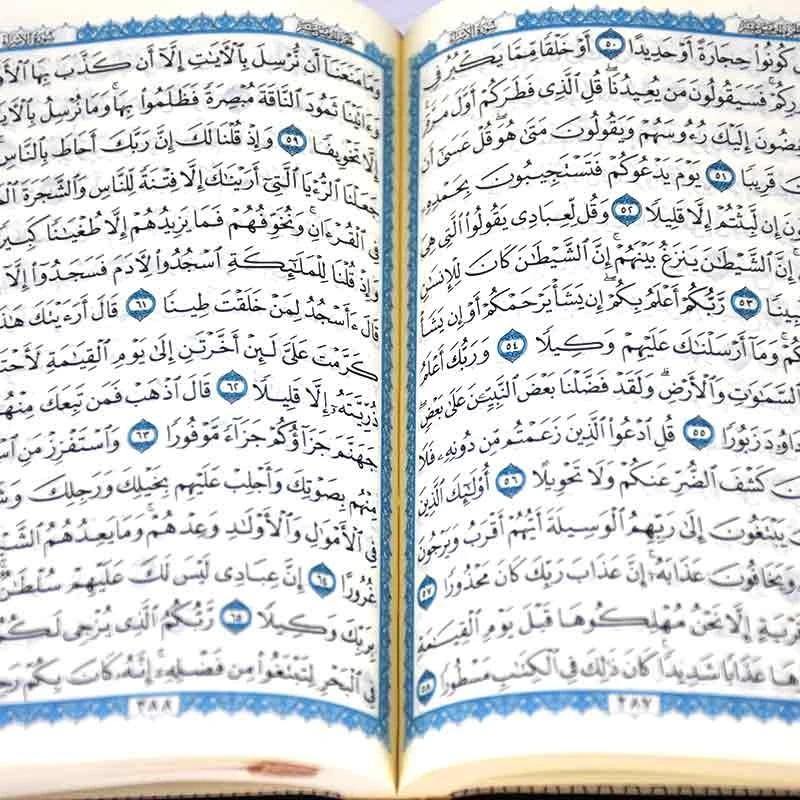 كُونُوا۟ حِجَارَةً أَوْ حَدِيدًا ٥٠ أَوْ خَلْقًا مِّمَّا يَكْبُرُ فِى
فَسَيَقُولُونَ مَن يُعِيدُنَا ۖ قُلِ ٱلَّذِى فَطَرَكُمْ أَوَّلَ مَرَّةٍ ۚ
إِلَيْكَ رُءُوسَهُمْ وَيَقُولُونَ مَتَىٰ هُوَ ۖ قُلْ عَسَىٰٓ أَن
قَرِيبًا ٥١ يَوْمَ يَدْعُوكُمْ فَتَسْتَجِيبُونَ بِحَمْدِهِۦ
إِن لَّبِثْتُمْ إِلَّا قَلِيلًا ٥٢ وَقُل لِّعِبَادِى يَقُولُوا۟ ٱلَّتِى هِىَ
إِنَّ ٱلشَّيْطَٰنَ يَنزَغُ بَيْنَهُمْ ۚ إِنَّ ٱلشَّيْطَٰنَ كَانَ لِلْإِنسَٰنِ
٥٣ رَّبُّكُمْ أَعْلَمُ بِكُمْ ۖ إِن يَشَأْ يَرْحَمْكُمْ أَوْ إِن يَشَأْ
وَمَآ أَرْسَلْنَٰكَ عَلَيْهِمْ وَكِيلًا ٥٤ وَرَبُّكَ أَعْلَمُ
ٱلسَّمَٰوَٰتِ وَٱلْأَرْضِ ۗ وَلَقَدْ فَضَّلْنَا بَعْضَ ٱلنَّبِيِّـۧنَ عَلَىٰ بَعْضٍ ۖ
زَبُورًا ٥٥ قُلِ ٱدْعُوا۟ ٱلَّذِينَ زَعَمْتُم مِّن دُونِهِۦ فَلَا
كَشْفَ ٱلضُّرِّ عَنكُمْ وَلَا تَحْوِيلًا ٥٦ أُو۟لَٰٓئِكَ ٱلَّذِينَ
يَبْتَغُونَ إِلَىٰ رَبِّهِمُ ٱلْوَسِيلَةَ أَيُّهُمْ أَقْرَبُ وَيَرْجُونَ
وَيَخَافُونَ عَذَابَهُۥٓ ۚ إِنَّ عَذَابَ رَبِّكَ كَانَ مَحْذُورًا ٥٧
إِلَّا نَحْنُ مُهْلِكُوهَا قَبْلَ يَوْمِ ٱلْقِيَٰمَةِ
عَذَابًا شَدِيدًا ۚ كَانَ ذَٰلِكَ فِى ٱلْكِتَٰبِ مَسْطُورًا ٥٨
٢٨٧
وَمَا مَنَعَنَآ أَن نُّرْسِلَ بِٱلْءَايَٰتِ إِلَّآ أَن كَذَّبَ بِهَا
وَءَاتَيْنَا ثَمُودَ ٱلنَّاقَةَ مُبْصِرَةً فَظَلَمُوا۟ بِهَا ۚ وَمَا نُرْسِلُ
إِلَّا تَخْوِيفًا ٥٩ وَإِذْ قُلْنَا لَكَ إِنَّ رَبَّكَ أَحَاطَ بِٱلنَّاسِ ۚ
جَعَلْنَا ٱلرُّءْيَا ٱلَّتِىٓ أَرَيْنَٰكَ إِلَّا فِتْنَةً لِّلنَّاسِ وَٱلشَّجَرَةَ
فِى ٱلْقُرْءَانِ ۚ وَنُخَوِّفُهُمْ فَمَا يَزِيدُهُمْ إِلَّا طُغْيَٰنًا
وَإِذْ قُلْنَا لِلْمَلَٰٓئِكَةِ ٱسْجُدُوا۟ لِءَادَمَ فَسَجَدُوٓا۟ إِلَّآ
قَالَ ءَأَسْجُدُ لِمَنْ خَلَقْتَ طِينًا ٦١ قَالَ أَرَءَيْتَكَ هَٰذَا
كَرَّمْتَ عَلَىَّ لَئِنْ أَخَّرْتَنِ إِلَىٰ يَوْمِ ٱلْقِيَٰمَةِ
ذُرِّيَّتَهُۥٓ إِلَّا قَلِيلًا ٦٢ قَالَ ٱذْهَبْ فَمَن تَبِعَكَ مِنْهُمْ
جَهَنَّمَ جَزَآؤُكُمْ جَزَآءً مَّوْفُورًا ٦٣ وَٱسْتَفْزِزْ مَنِ
مِنْهُم بِصَوْتِكَ وَأَجْلِبْ عَلَيْهِم بِخَيْلِكَ وَرَجِلِكَ
فِى ٱلْأَمْوَٰلِ وَٱلْأَوْلَٰدِ وَعِدْهُمْ ۚ وَمَا يَعِدُهُمُ
غُرُورًا ٦٤ إِنَّ عِبَادِى لَيْسَ لَكَ عَلَيْهِمْ سُلْطَٰنٌ ۚ
بِرَبِّكَ وَكِيلًا ٦٥ رَّبُّكُمُ ٱلَّذِى يُزْجِى لَكُمُ
فِى ٱلْبَحْرِ لِتَبْتَغُوا۟ مِن فَضْلِهِۦٓ ۚ إِنَّهُۥ كَانَ بِكُمْ
٢٨٨